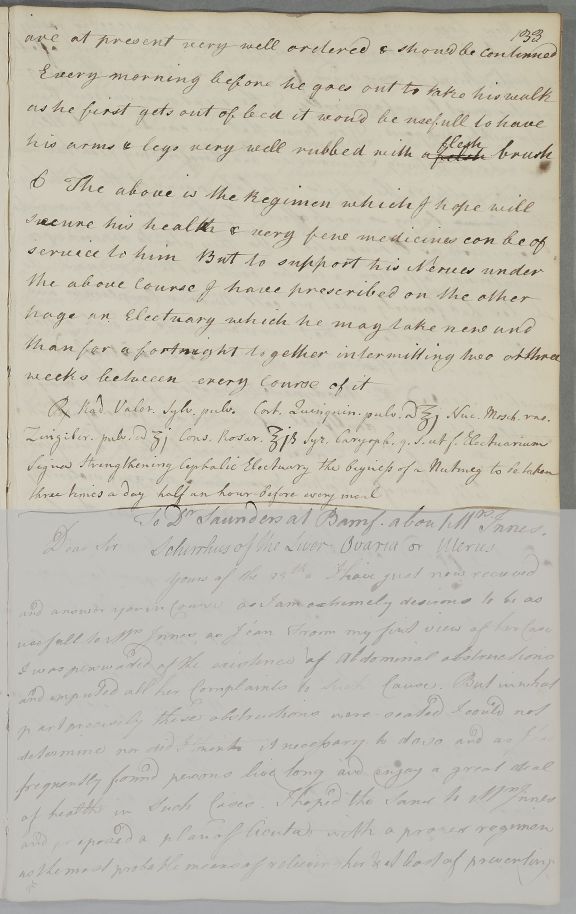 133
are at present very well ordered & should be continued
Every morning before he goes out to take his walk
as he first gets out of bed it would be usefull to have
his arms & legs very well rubbed with a flesh brush
6 The above is the Regimen which I hope will
secure his health & very few medicines can be of
service to him But to support his Nerves under
the above Course I have prescribed on the other
page an Electuary which he may take now and
than for a fortnight together intermitting two or three
weeks between every Course of it
℞ Rad. Valer. Sylv. pulv. Cort. Quinquin. pulv. a ʒj Nuc. Mosch. ras.
Zingiber. pulv. a ʒj Cons. Rosar. ℥jß Syr. Caryoph. q. s. ut f. Electuarium
Signa Strengthening Cephalic Electuary the bigness of a Nutmeg to be taken
three times a day half an hour before every meal
To Dr Saunders at Bamf. about Mrs Innes.
Dear Sir Schirrhus of the Liver Ovaria or Uterus
Yours of the I have just now received
and answer in Course as I am extremely desirous to be as
usefull to Mrs Innes as I can From my first view of her Case
I was perswaded of the existence of Abdominal obstructions
and imputed all her Complaints to such Cause. But in what
part precisely these obstructions were seated I could not
determine nor did I think it necessary to do so and as I
frequently found persons live long and enjoy a great deal
of health in Such Cases. I hoped the Same to Mrs Innes
and proposed a plan of Cicuta with a proper regimen
as the most probable means of relieving her & at least of preventing